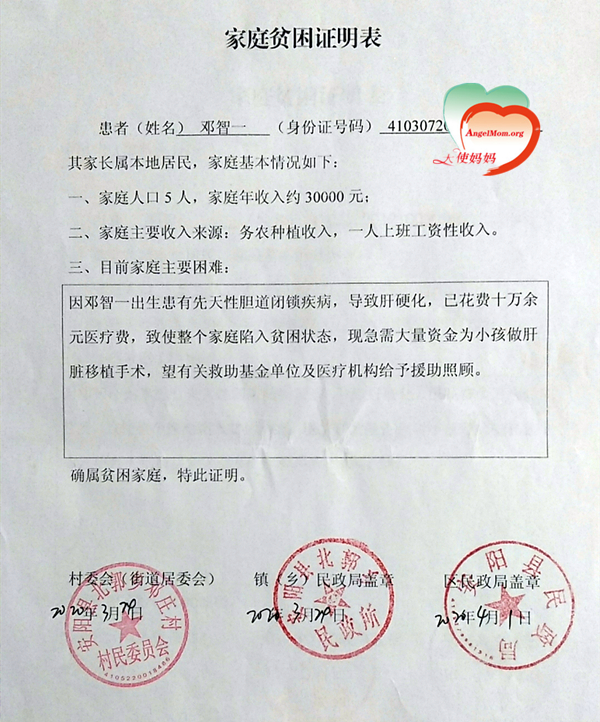 家庭贫困证明表
AngelMom.org
天使妈妈
患者（姓名） 邓智一 （身份证号码） 4103072
其家长属本地居民，家庭基本情况如下：
一、家庭人口5人，家庭年收入约30000元；
二、家庭主要收入来源：务农种植收入，一人上班工资性收入。
三、目前家庭主要困难：
因邓智一出生患有先天性胆道闭锁疾病，导致肝硬化，已花费十万余
元医疗费，致使整个家庭陷入贫困状态，现急需大量资金为小孩做肝
脏移植手术，望有关救助基金单位及医疗机构给予援助照顾。
确属贫困家庭，特此证明。
村委会（街道居委会） 镇（乡）民政局盖章 区民政局盖章
2020年3月29日 2020年3月29日 2020年4月1日
安阳县北郭乡邓庄村
村民委员会
4105220018486
安阳县北郭乡
民政所
安阳县民政局